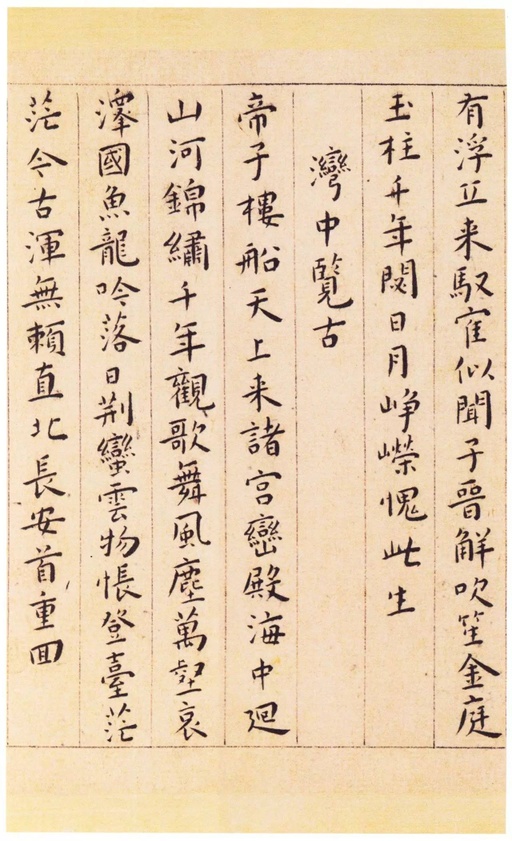 有浮丘来馭寉似聞子晋解吹笙金庭
玉柱千年閟日月峥嶸愧此生
灣中覧古
帝子樓船天上来諸宫巒殿海中廻
山河錦繡千年觀歌舞風塵萬壑哀
澤國魚龍吟落日荆蠻雲物悵登臺茫
茫今古渾無賴直北長安首重囬